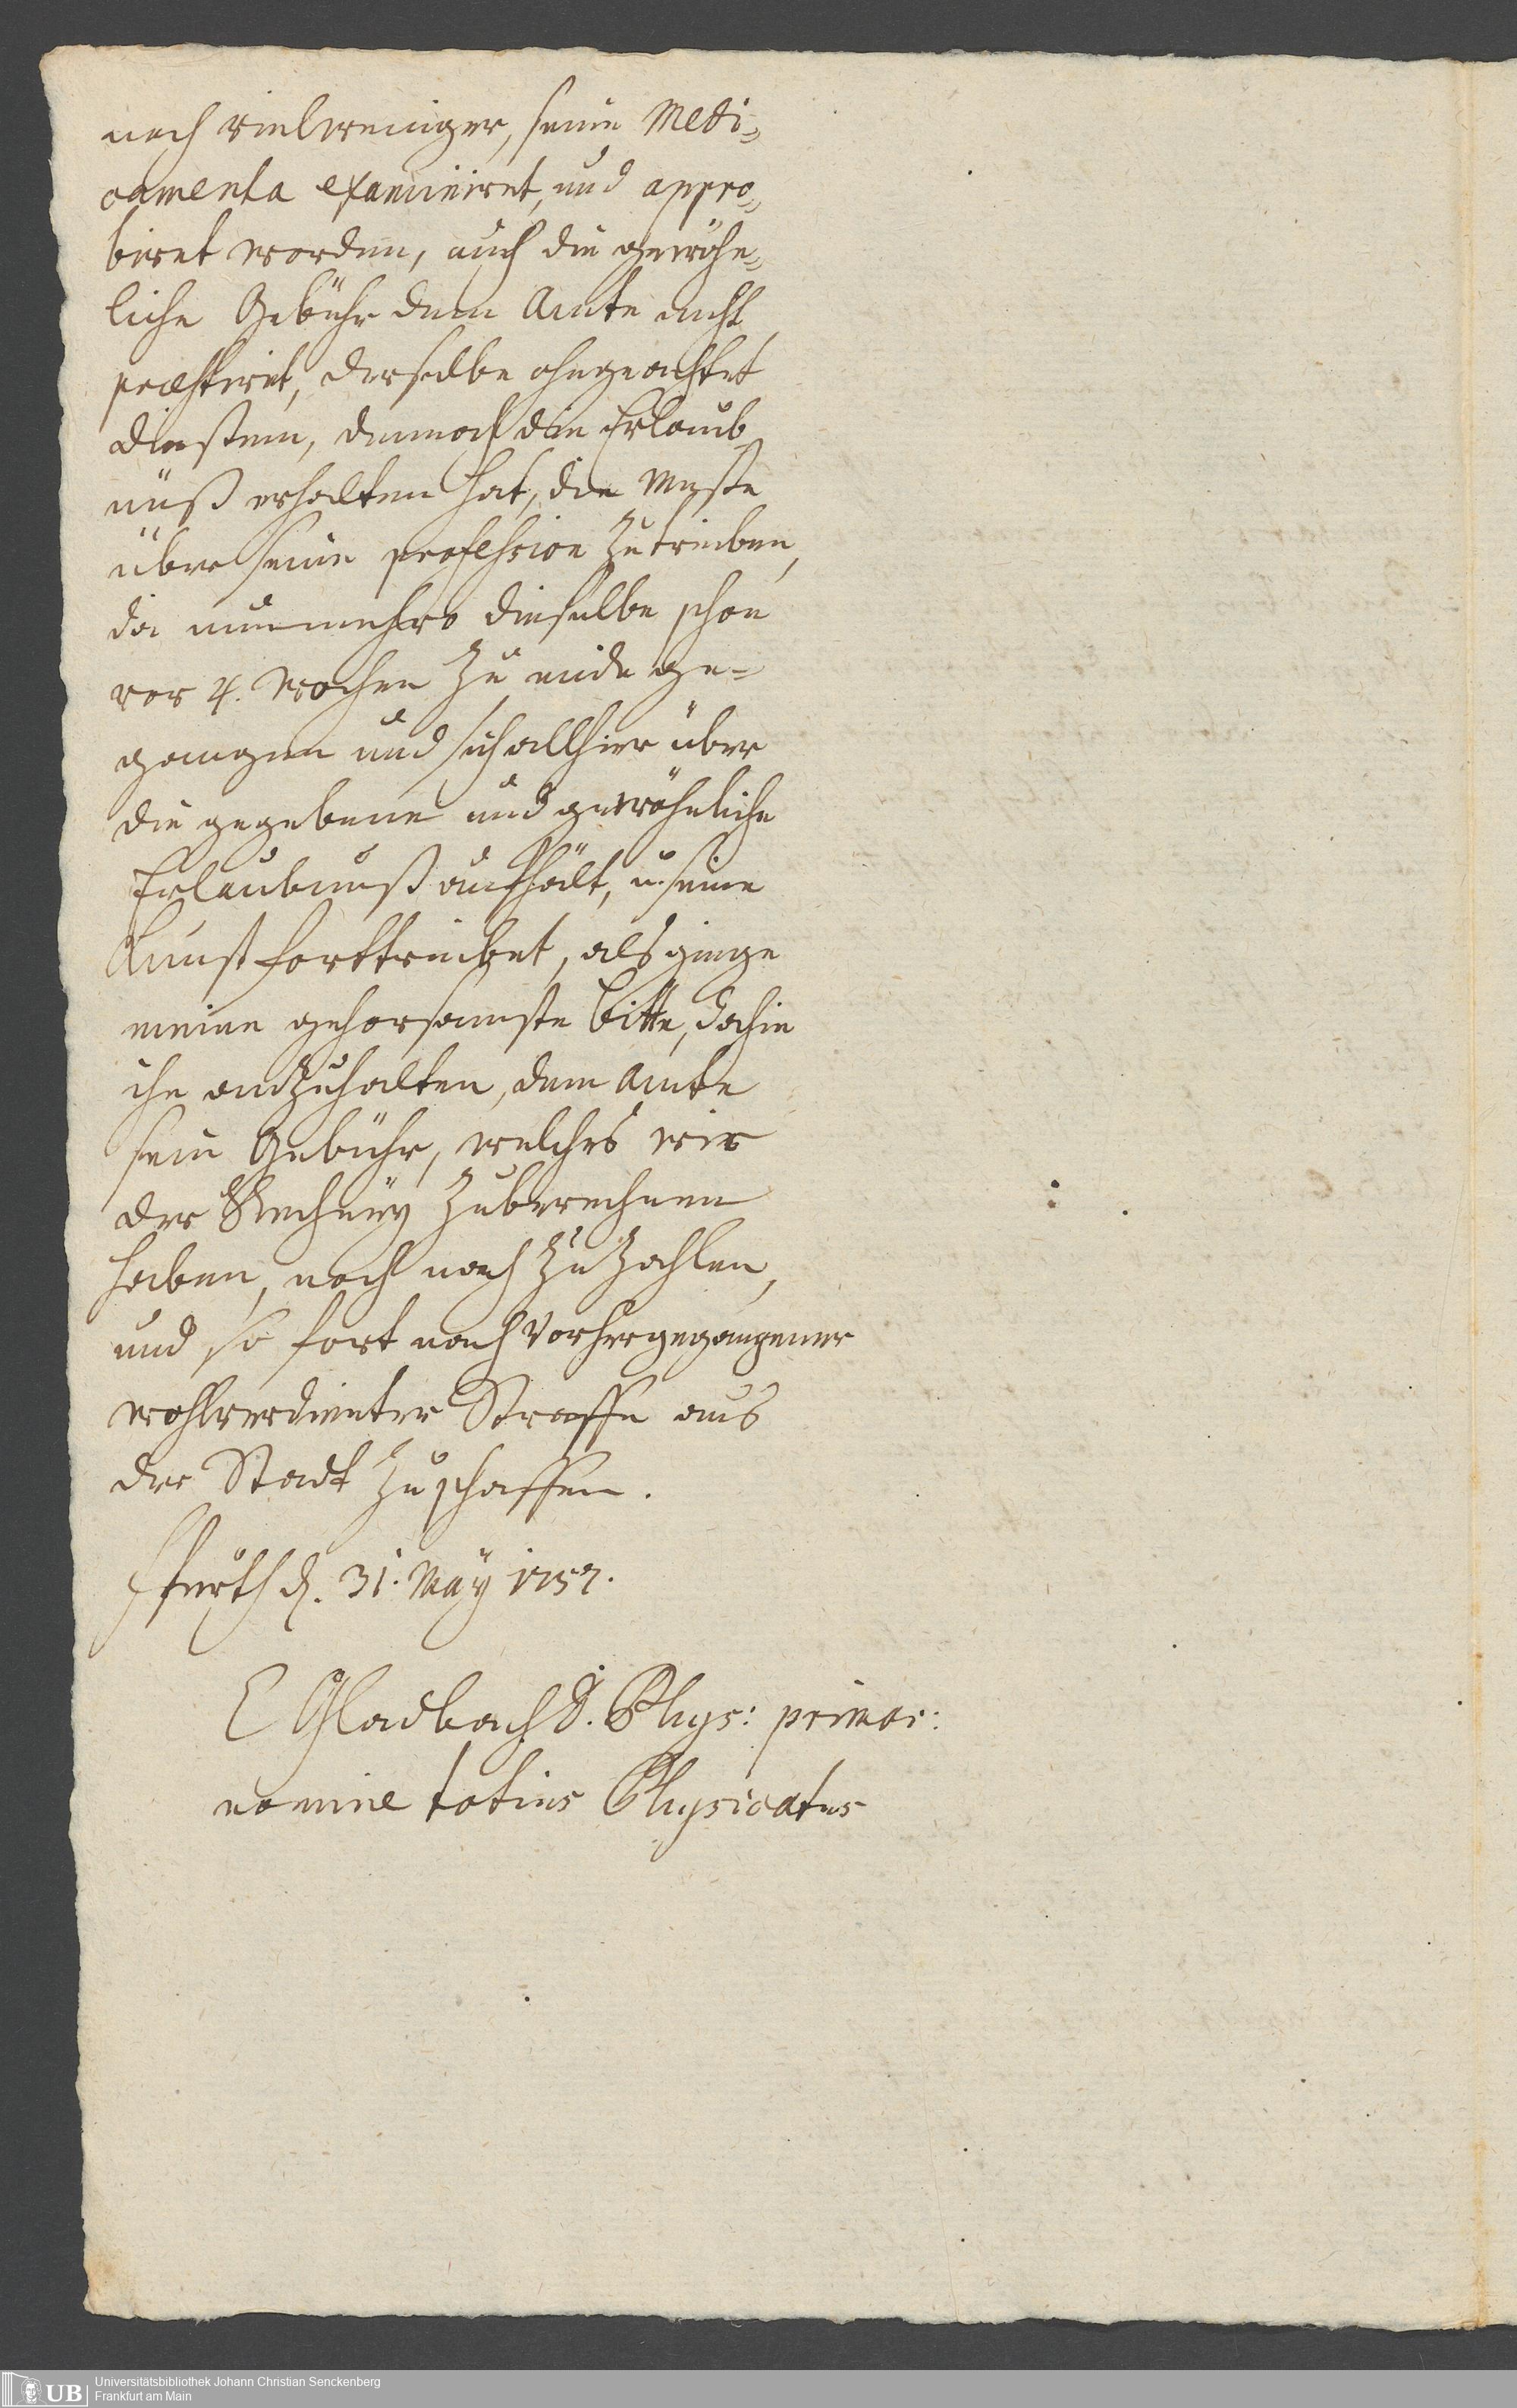 noch vielweniger, seine Medi=
camenta examiniret, und appro=
biret worden, auch die gewöhn=
liche Gebühr dem Amte nicht
præstiret, derselbe ohngeachtet
diesem, dennoch die Erlaub
nüß erhalten hat, die Meße
über seine profession zutreiben,
da nunmehro dieselbe schon
vor 4. Wochen zu ende ge=
gangen und sich allhier über
die gegebene und gewöhnliche
Erlaubnuß aufhält, u. seine
Kunst forttreibet, als ginge
meine gehorsamste bitte, dahin
ihn anzuhalten, dem Amte
sein Gebühr, welches wir
der Rechney zuberechnen
haben, noch nach zu zahlen,
und so fort nach vorhergegangener
wohlverdienter Straffe aus
der Stadt zu schaffen.
Ffurth d. 31. May 1757.
E Gladbach D. Phys: primar:
nomine totius Physicatus
Universitätsbibliothek Johann Christian Senckenberg
Frankfurt am Main
UB